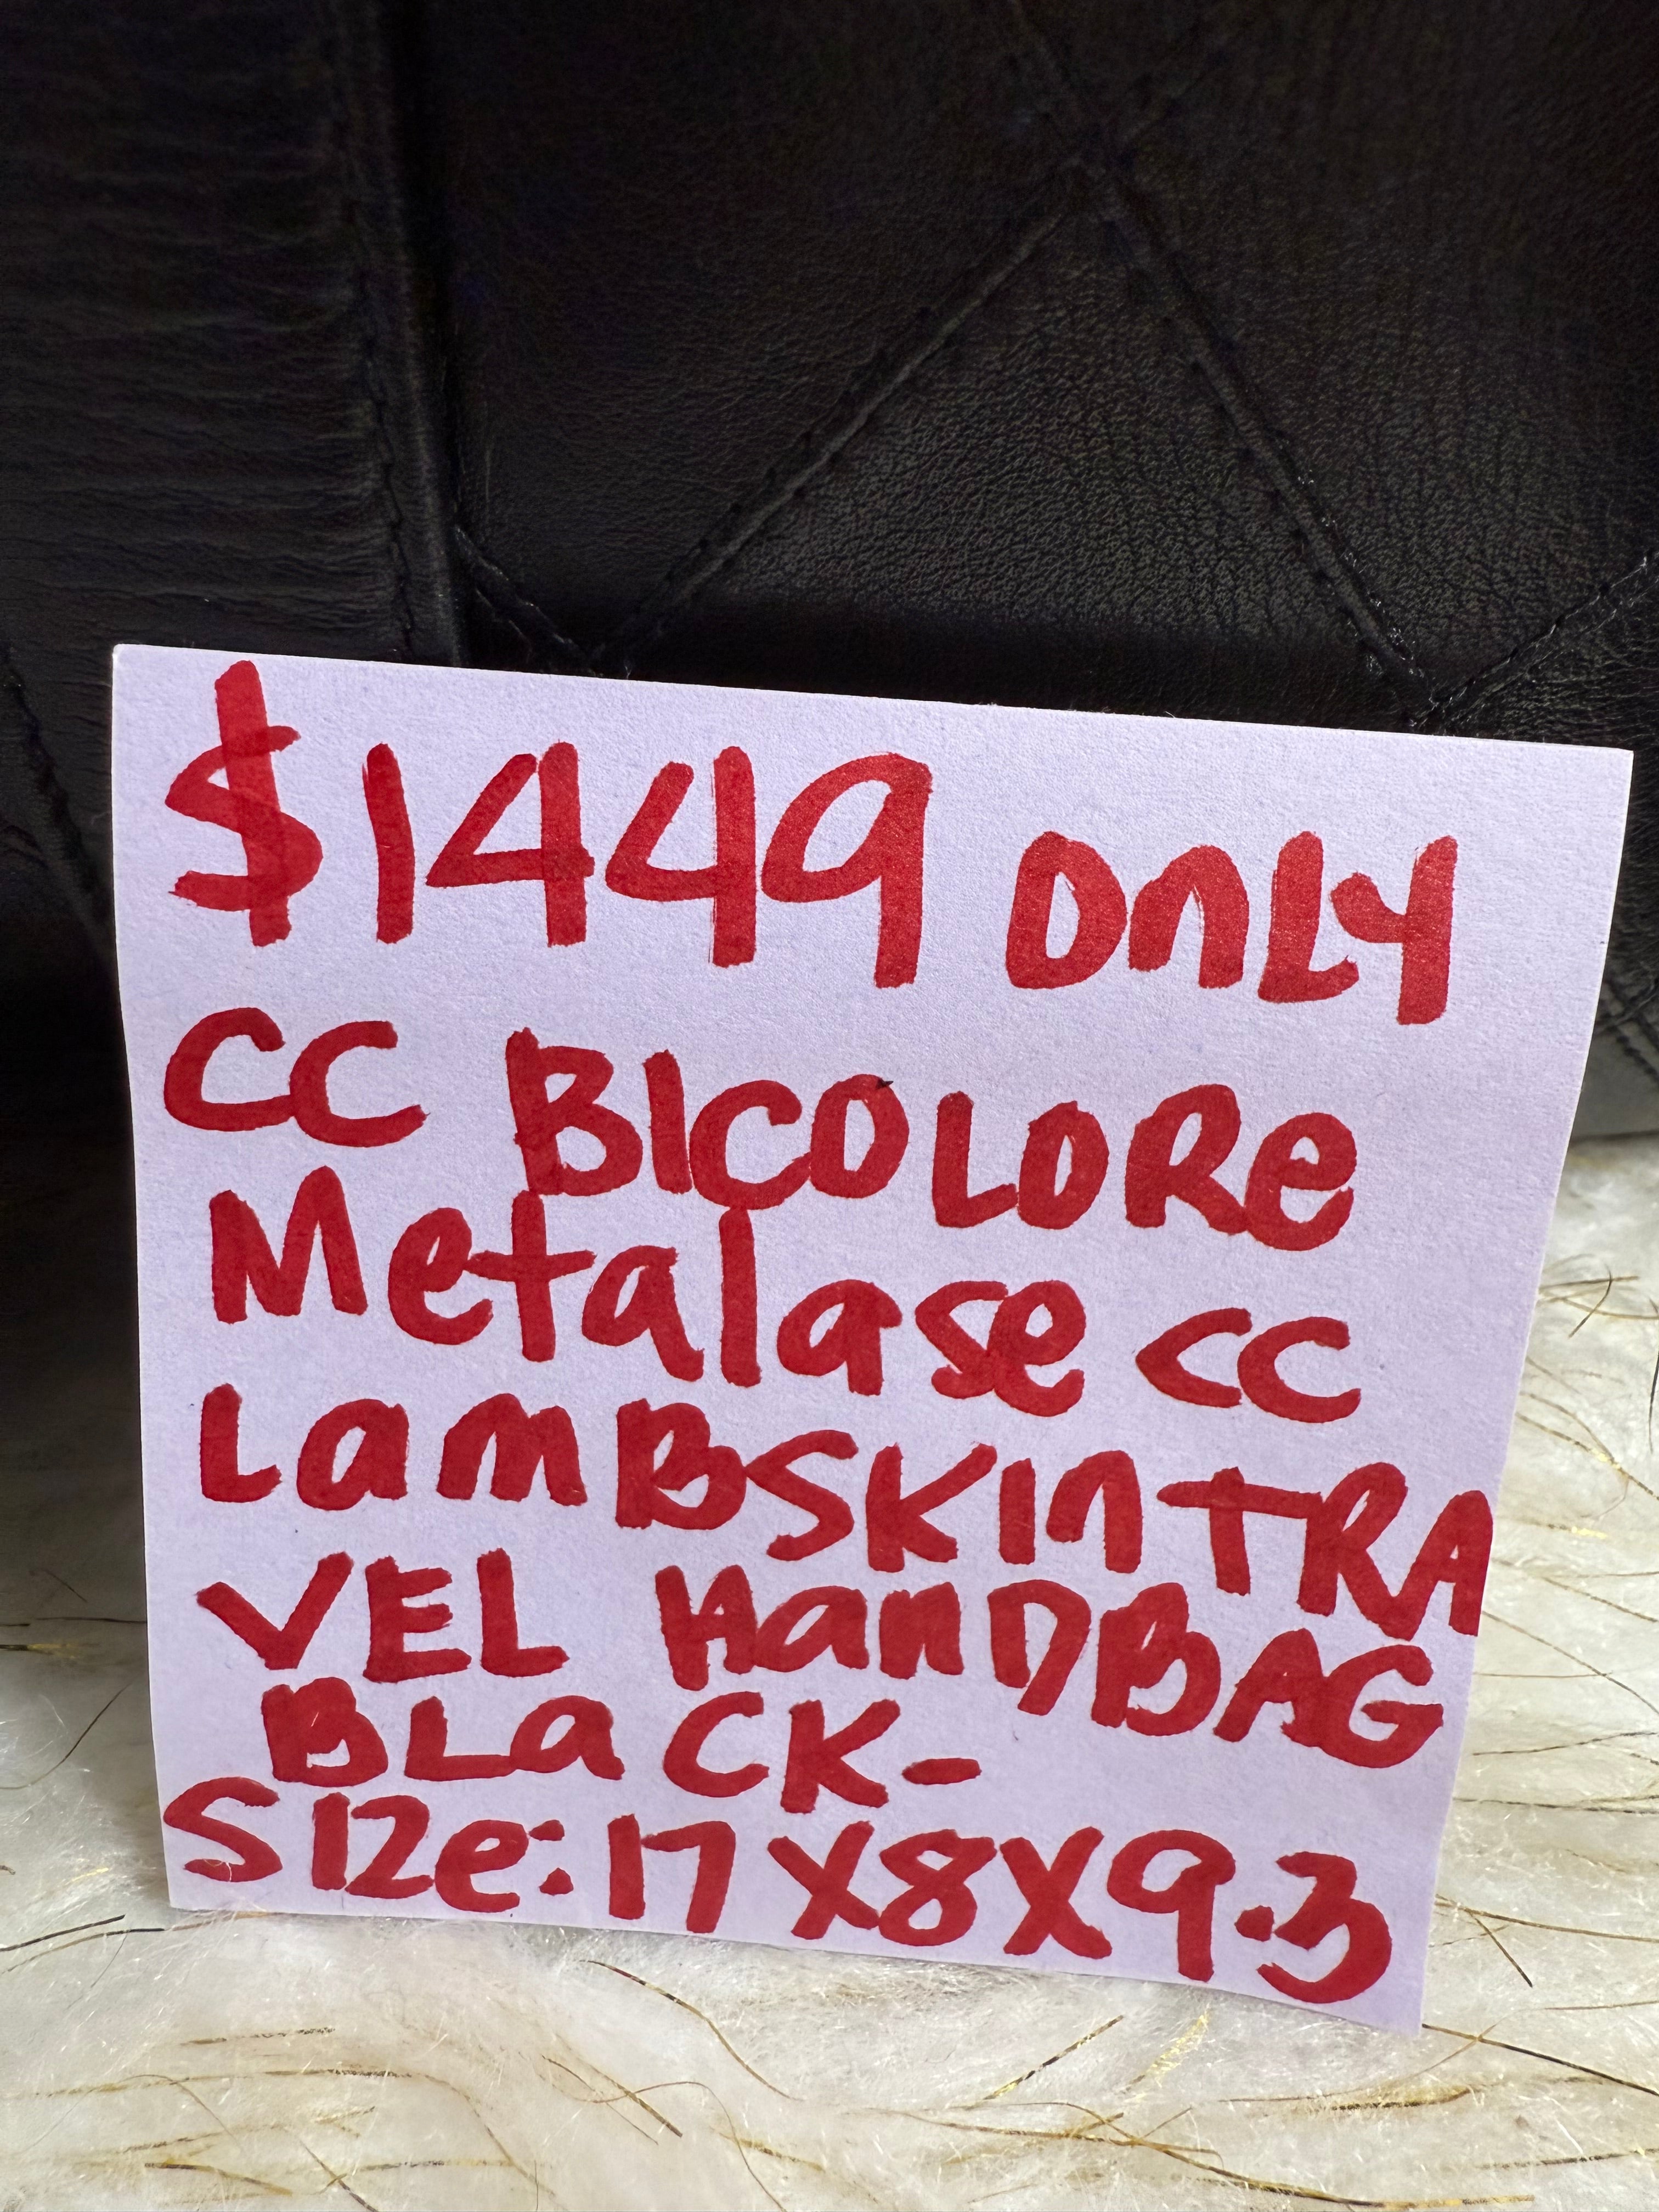 $1449 only
CC BICOLORe
Metalase CC
LamBSKIn TRA
VEL HanDBAG
BLaCK-
SIZe: 17X8X9.3